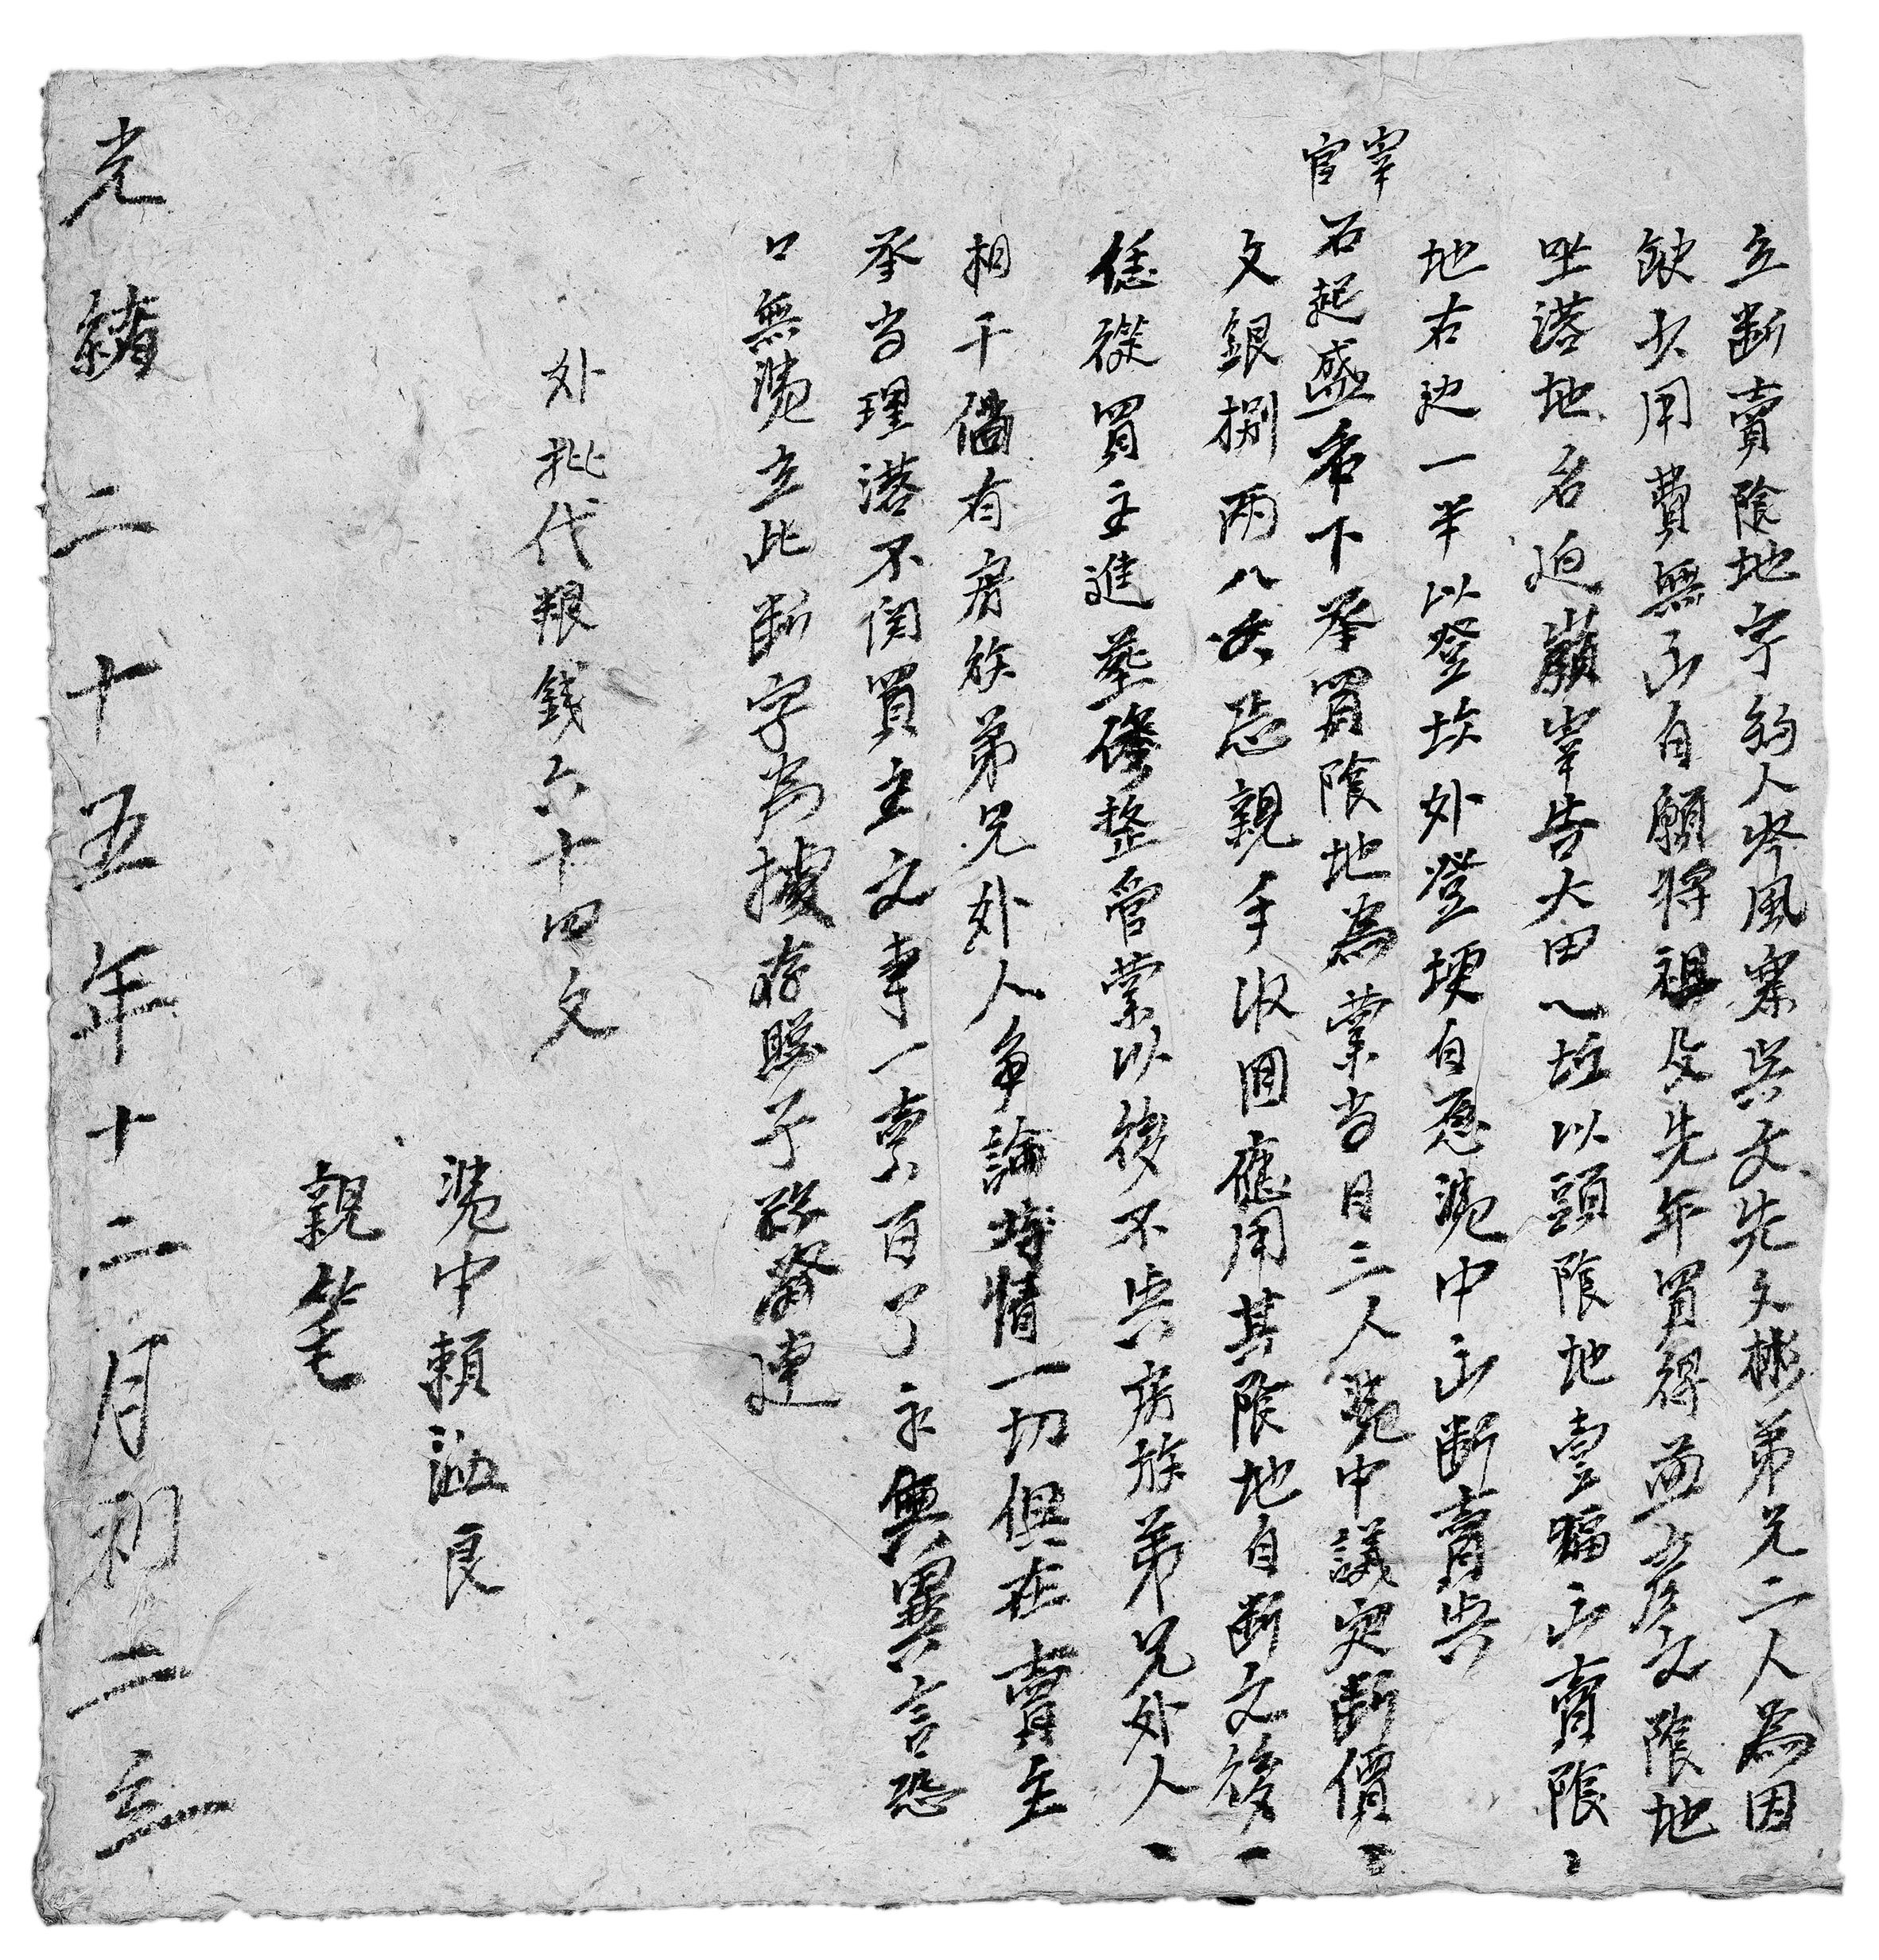 立断賣陰地字約人岑風寨吳文先文彬弟兄二人為因
缺少用費無出自願將祖父先年買得孟彦文陰地
坐落地名迫巅宰告大田一坵以頭陰地壹塸出賣陰〻
地右边一半以登坎外登埂自愿凴中出断賣與
宰官石起盛名下承買陰地為業当日三人凴中議定断價〻
文銀捌兩八〻恐親手收囬應用其陰地自断之後一
恁從買主進葬修整管業以後不與房族弟兄外人、
相干倘有房族弟兄外人争論䓁情一切俱在賣主
承当理落不関買主之事一賣百了永無異言恐
口無凴立此断字為據存照子孫發達
外批代粮錢六十四文
凴中賴海良
親筆
光緒二十五年十二月初二立